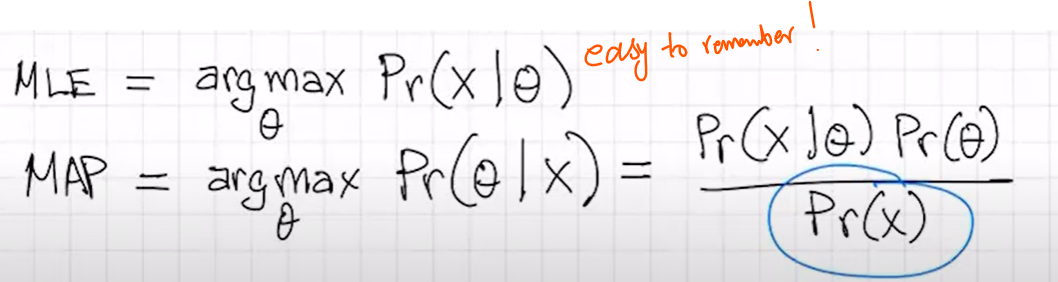 MLE = argmax_θ Pr(x|θ) easy to remember!
MAP = argmax_θ Pr(θ|x) = Pr(x|θ) Pr(θ) / Pr(x)